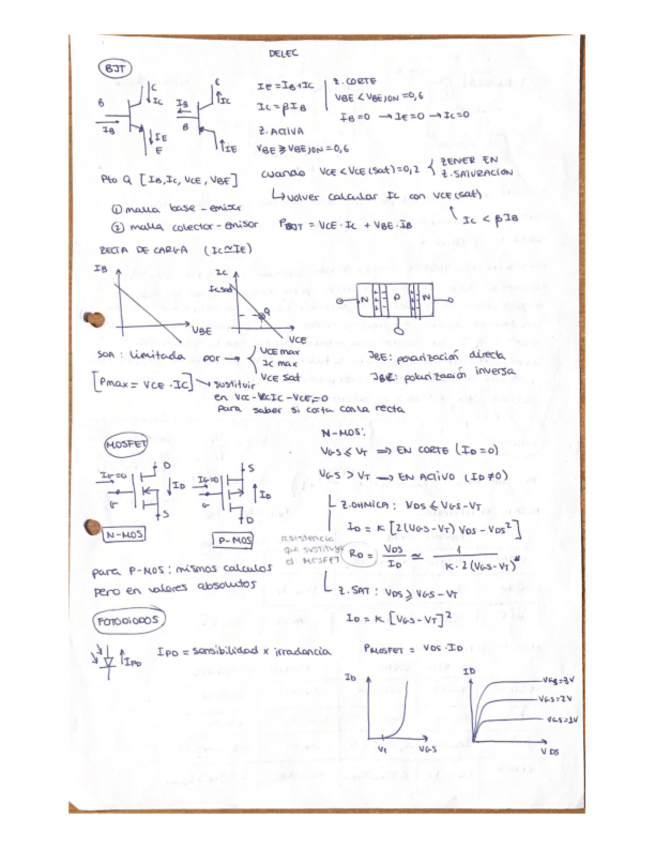 DELEC
BJT
C
B
IC
IB
IE
E
C
IB
IC
B
IE
IE = IB + IC
IC = βIB
Z. CORTE
VBE < VBE)ON = 0,6
IB = 0 → IE = 0 → IC = 0
Z. ACTIVA
VBE ≥ VBE)ON = 0,6
Pto Q [IB, IC, VCE, VBE]
cuando VCE < VCE(sat) = 0,2 { ZENER EN Z. SATURACIÓN
↳ volver calcular IC con VCE(sat)
IC < βIB
① malla base - emisor
② malla colector - emisor
PBJT = VCE · IC + VBE · IB
RECTA DE CARGA (IC ≃ IE)
IB
VBE
IC
IC sat
Q
VCE
N
P
N
SOA: limitada por →
VCE max
IC max
VCE sat
JBE: polarización directa
polarización inversa
[Pmax = VCE · IC] → sustituir
para saber si corta con la recta
MOSFET
IG=0
D
ID
G
S
N-MOS
IG=0
S
ID
G
D
P-MOS
para P-MOS: mismos calculos
pero en valores absolutos
N-MOS:
VGS ≤ VT ⇒ EN CORTE (ID = 0)
VGS > VT → EN ACTIVO (ID ≠ 0)
Z. OHMICA: VDS ≤ VGS - VT
ID = K [2(VGS - VT) VDS - VDS²]
resistencia
que sustituye
al MOSFET
RD = VDS / ID ≃ 1 / K · 2 (VGS - VT)
Z. SAT: VDS ≥ VGS - VT
ID = K [VGS - VT]²
FOTODIODOS
IPD
IPD = sensibilidad x irradancia
PMOSFET = VDS · ID
ID
VT
VGS
ID
VGS=3V
VGS=2V
VGS=1V
VDS